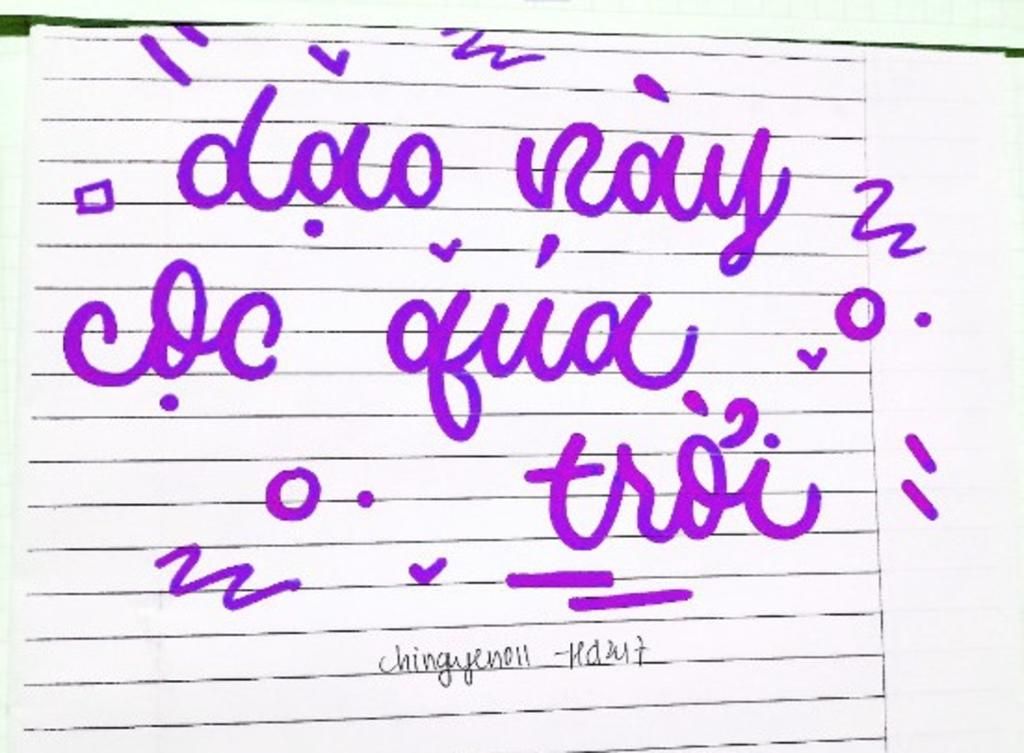 dạo này
cọc quá
trời
chinguyen011 -Hd2417